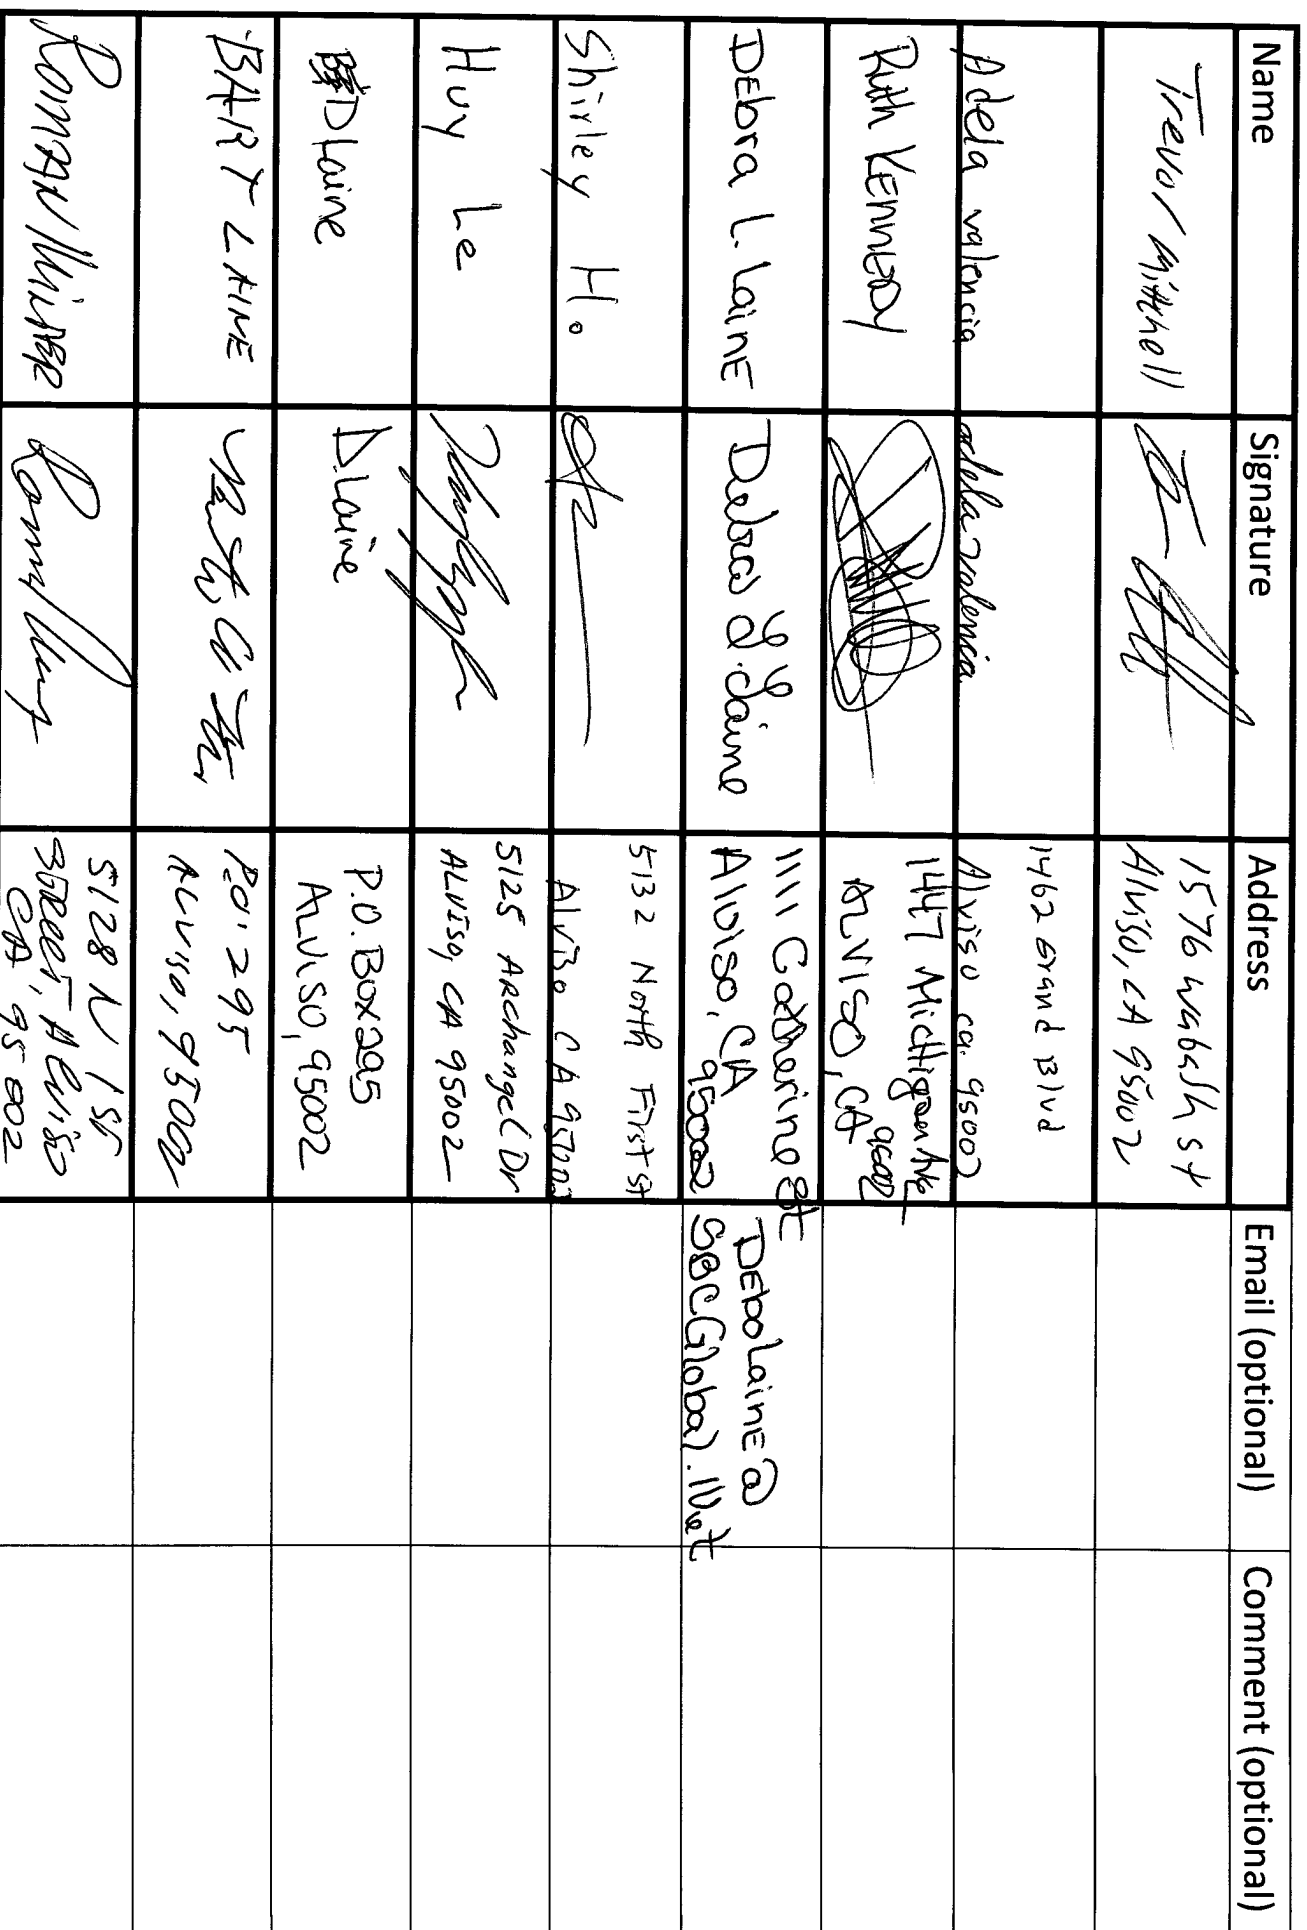 Name
Signature
Address
Email (optional)
Comment (optional)
Trevor Mitchell
1576 Wabash st
Alviso, CA 95002
Adela valencia
adela valencia
1462 Grand Blvd
Alviso ca. 95002
Ruth KENNEDY
1447 Michigan Ave
ALVISO, CA 95002
DEbra L. LainE
Debra L. Laine
1111 Catherine St
Alviso, CA
95002
DEboLainE@
SBCGlobal.Net
Shirley Ho
5132 North First st
Alviso CA 95002
Huy Le
5125 Archangel Dr
ALVISO, CA 95002
D Laine
D. Laine
P.O. Box 295
ALVISO, 95002
BART LAINE
P.O. 295
ALVISO, 95002
Roman
5128 N 1st
Street, Alviso
CA 95002